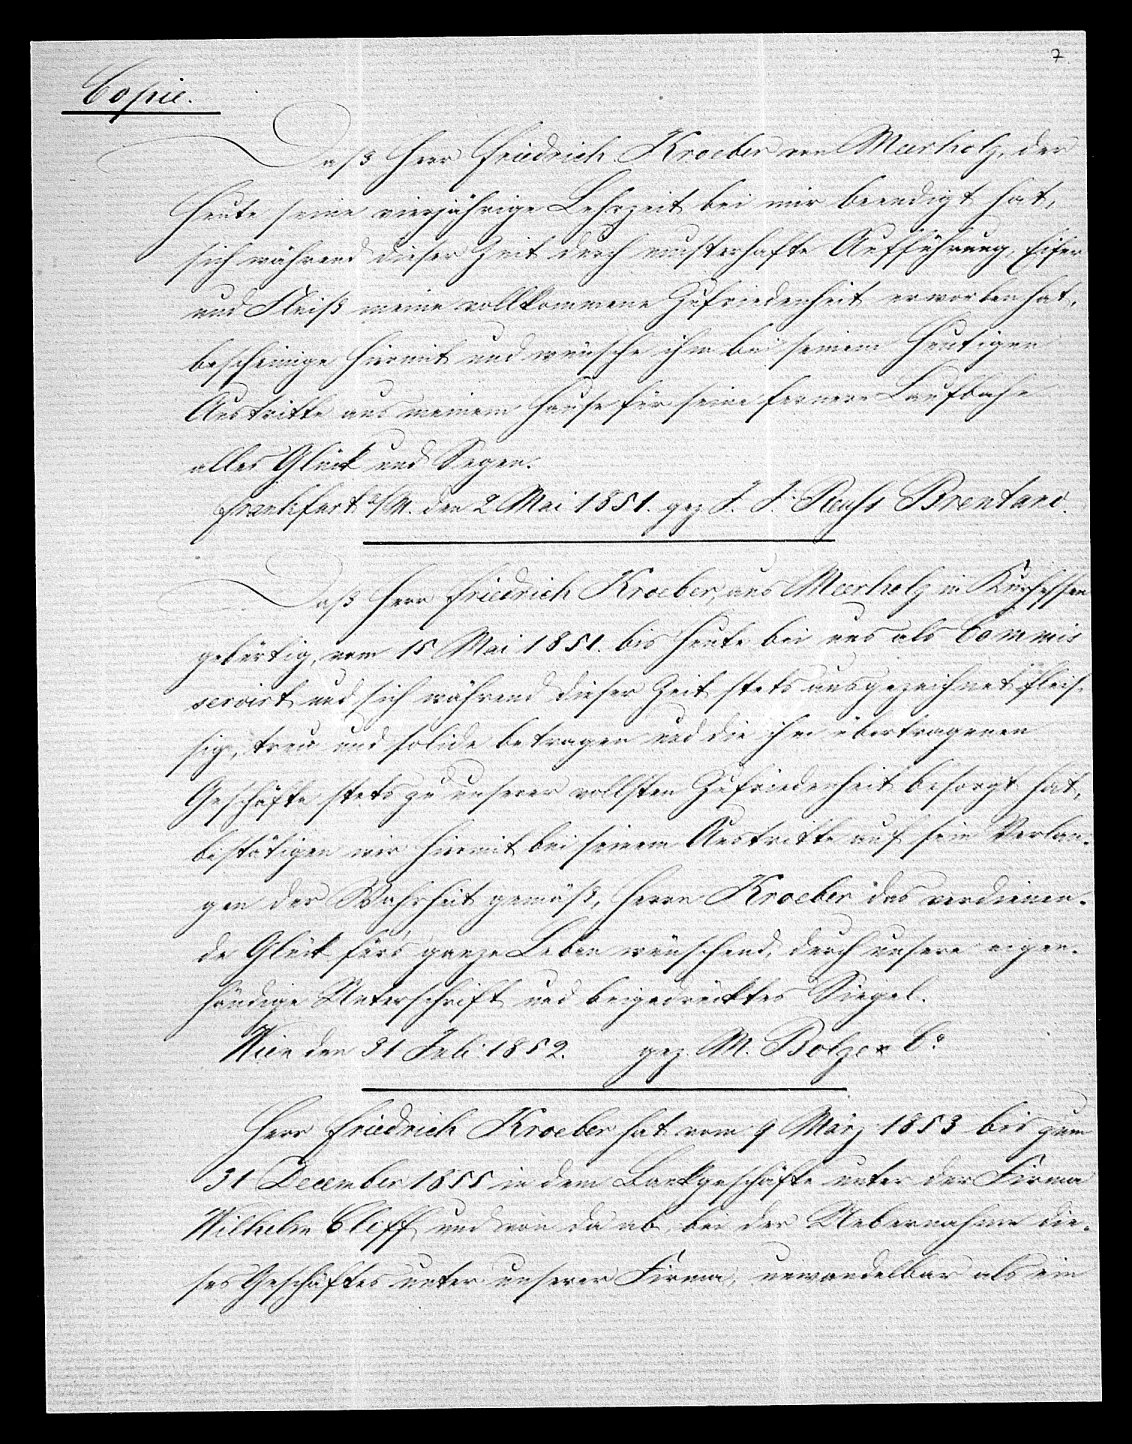 7
Copie.
Daß Herr Friedrich Kroeber von Meerholz, der
heute seine vierjährige Lehrzeit bei mir beendigt hat,
sich während dieser Zeit durch musterhafte Aufführung, Eifer
und Fleiß meine vollkommene Zufriedenheit erworben hat,
bescheinige hiermit und wünsche ihm bei seinem heutigen
Austritte aus meinem Hause für seine fernere Laufbahn
alles Glück und Segen.
Frankfurt a/M. den 2 Mai 1851. gez. J. J. Brentano.
Daß Herr Friedrich Kroeber, aus Meerholz in Kurhessen
gebürtig, vom 15 Mai 1851. bis heute bei uns als Commis
servirt und sich während dieser Zeit stets ausgezeichnet fleis-
sig, treu und solide betragen und die ihm übertragenen
Geschäfte stets zu unserer vollsten Zufriedenheit besorgt hat,
bestätigen wir hiermit bei seinem Austritte auf sein Verlan-
gen der Wahrheit gemäß, Herrn Kroeber das verdienen-
de Glück für's ganze Leben wünschend, durch unsere eigen-
händige Unterschrift und beigedrücktes Siegel.
Wien den 31 Juli 1852. gez. M. Bolze & Co
Herr Friedrich Kroeber hat vom 9 März 1853 bis zum
31 December 1855 in dem Bankgeschäfte unter der Firma
Wilhelm Cloff und von da ab, bei der Uebernahme die-
ses Geschäftes unter unserer Firma, unwandelbar als ein